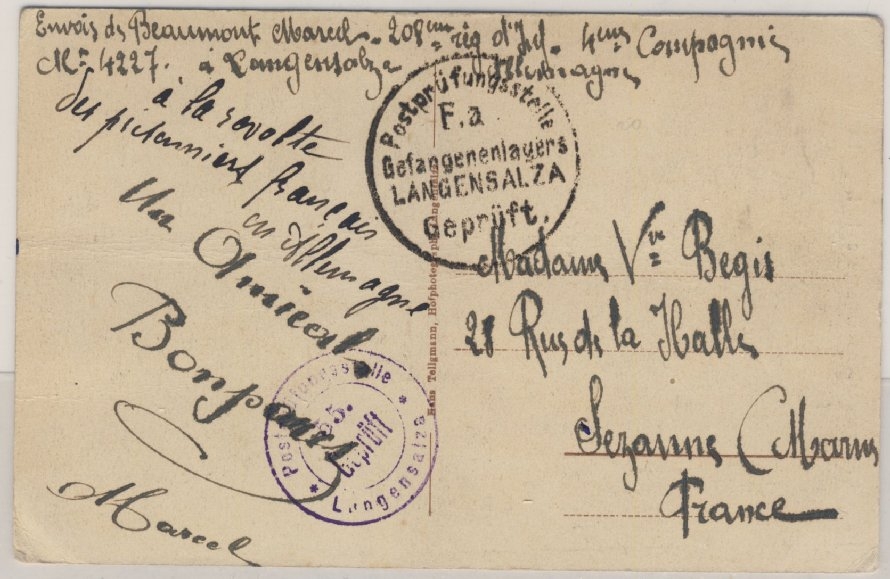 Envois de Beaumont Marcel. 208eme rég d'Inf. 4eme Compagnie
Mle 4227. à Langensalza Allemagne
à la revolte
des prisonniers français
en Allemagne
Un Amical
Bonjour
Marcel
Postprüfungsstelle
F.a.
Gefangenenlagers
LANGENSALZA
Geprüft.
Madame Vve Begis
28 Rue de la Halle
Sezanne (Marne
France
Hans Tellgmann, Hofphotograph, Langensalza
Postprüfungsstelle
55.
Geprüft
* Langensalza *